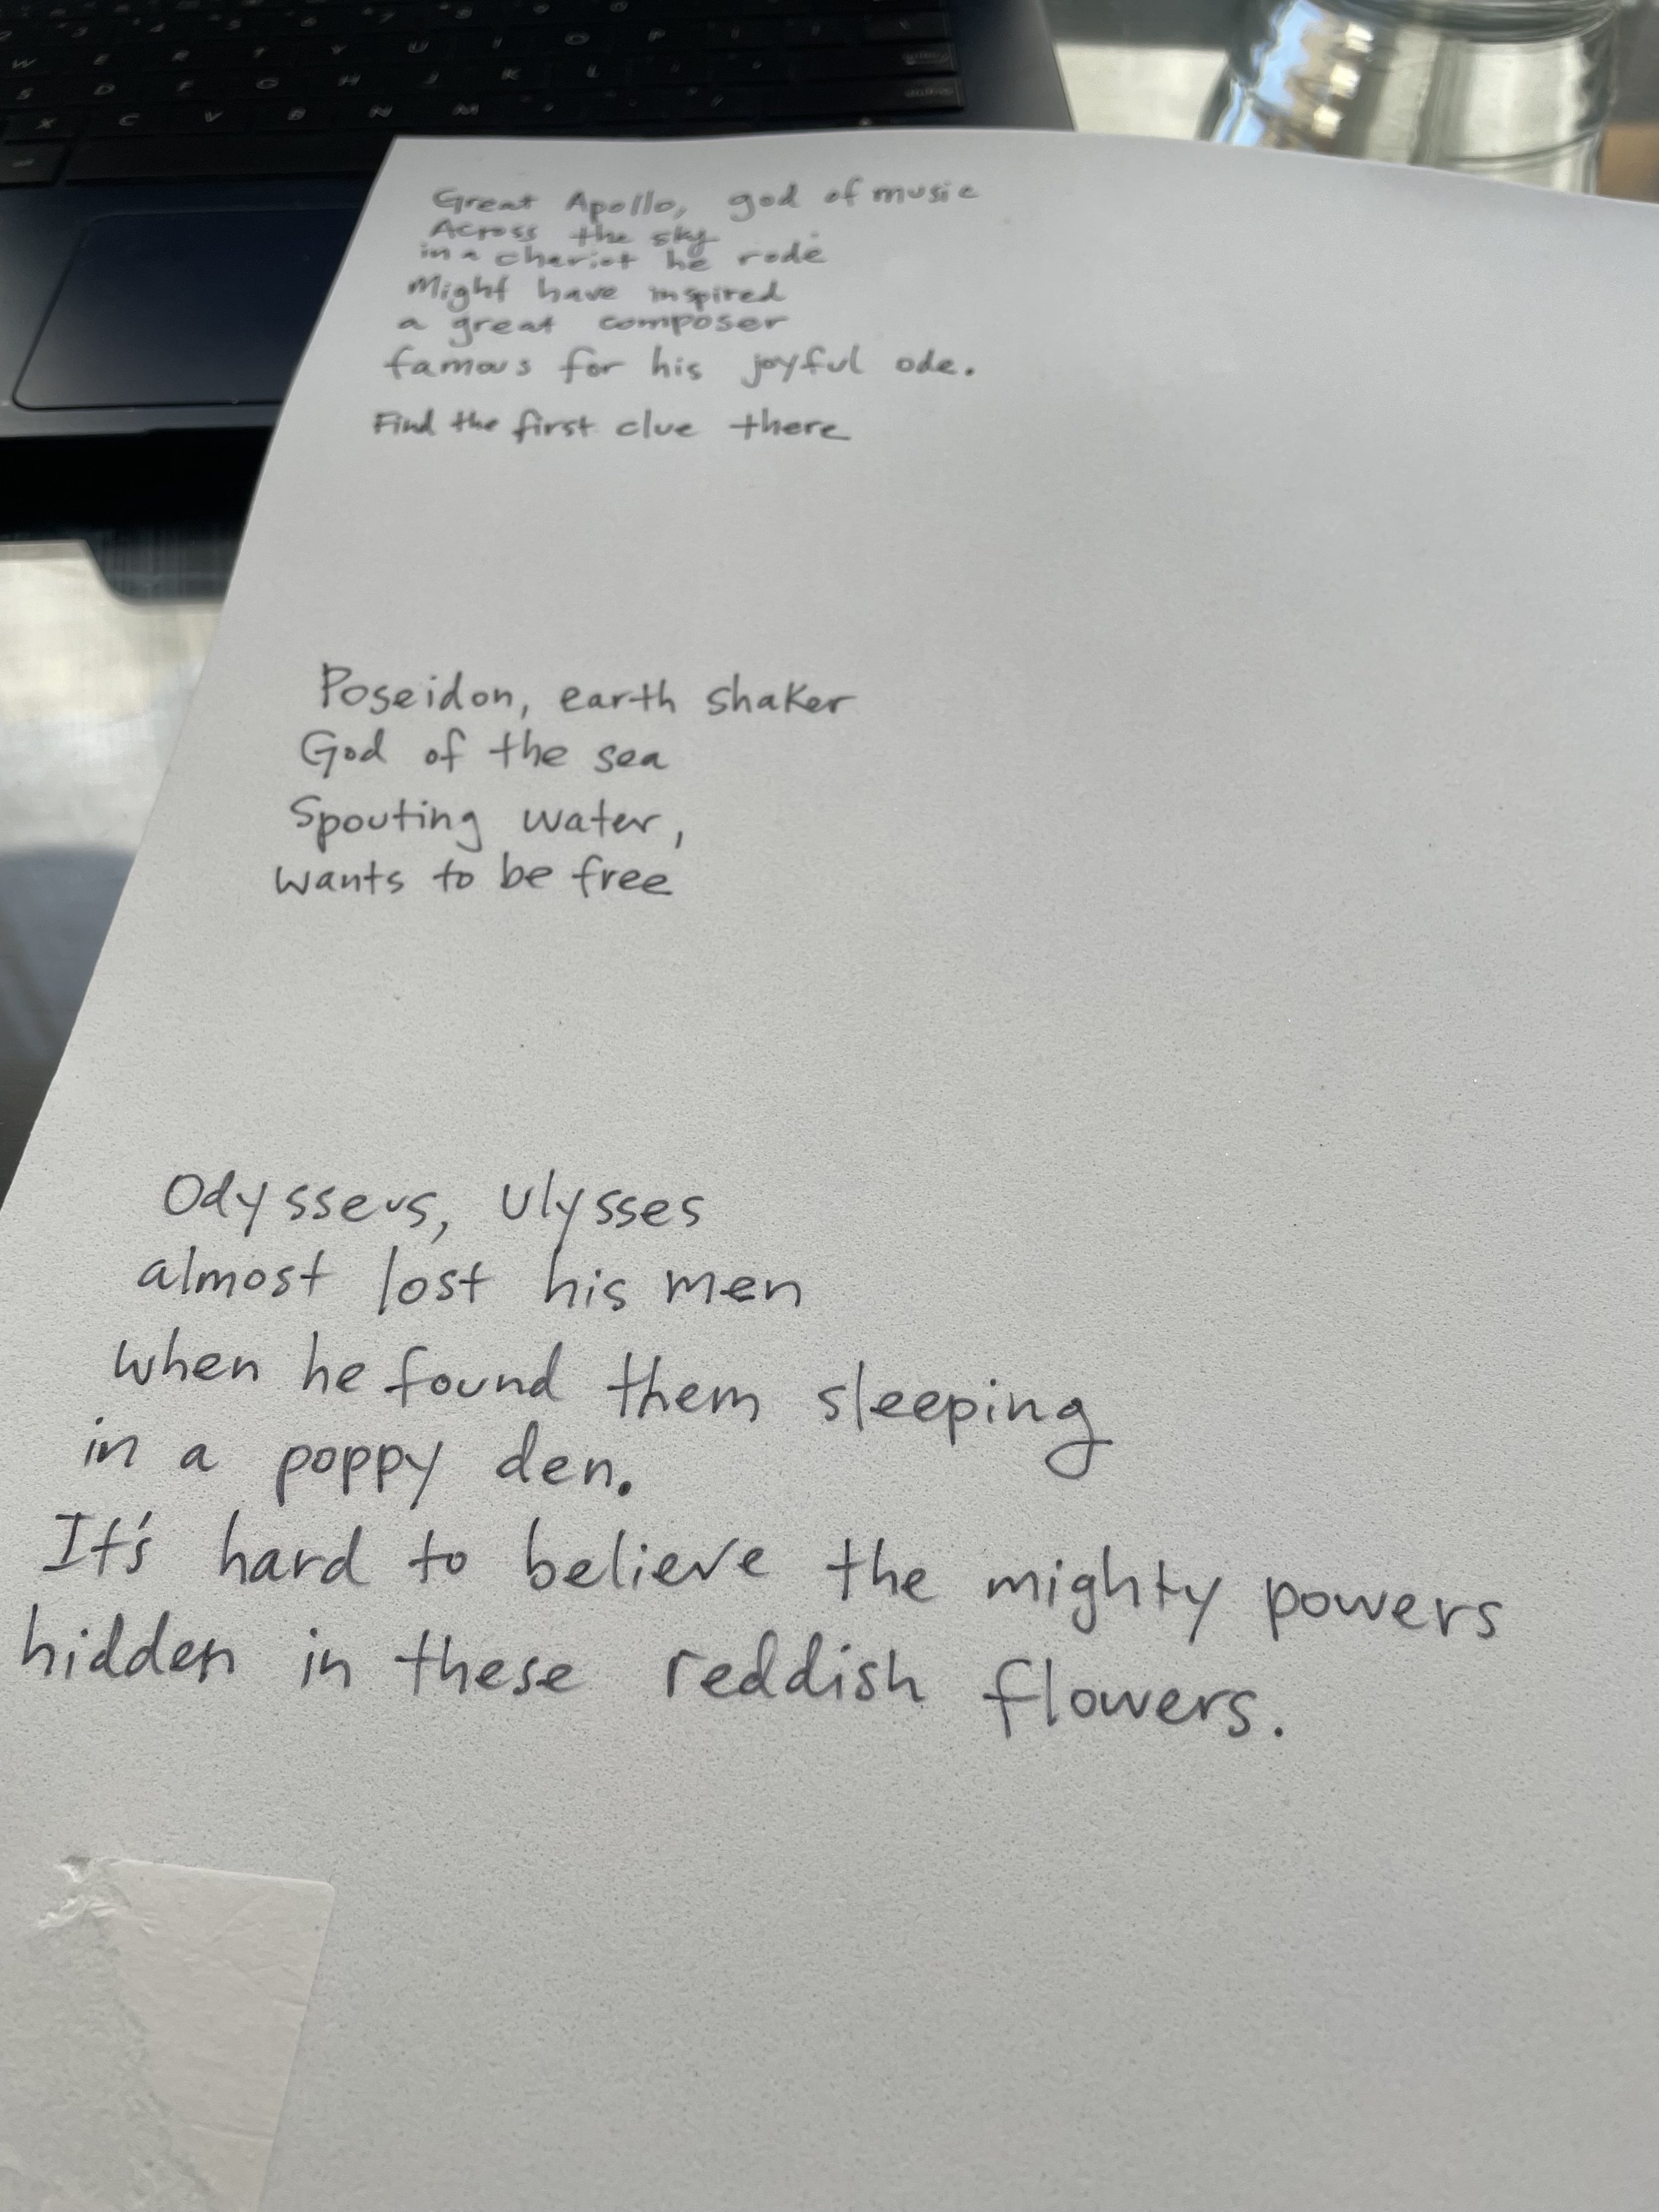 Great Apollo, god of music
Across the sky
in a chariot he rode
Might have inspired
a great composer
famous for his joyful ode.
Find the first clue there
Poseidon, earth shaker
God of the sea
Spouting water,
wants to be free
Odysseus, Ulysses
almost lost his men
when he found them sleeping
in a poppy den.
It's hard to believe the mighty powers
hidden in these reddish flowers.